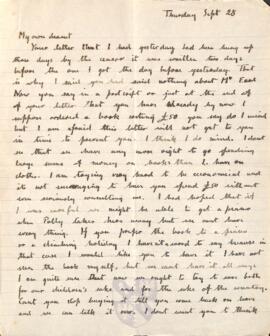 Thursday Sept 28
My own dearest
Your letter that I had yesterday had been hung up
three days by the censor it was written two days
before the one I got the day before yesterday. That
is why I said you had said nothing about Mr East
Now you say in a postscript or just at the end
of your letter that you have already by now I
suppose ordered a book costing £50 you say do I mind
but I am afraid this letter will not get to you
in time to prevent you. I think I do mind. I don't
see that we have any more right to go spending
large sums of money on books than I have on
clothes. I am trying very hard to be economical and
it's not encouraging to hear you spend £50 without
even seriously consulting me. I had hoped that if
I was careful we might be able to get a piano
when Polly takes hers away but we can't have
every thing. If you prefer the book to a piano
or a climbing holiday I have it's to say because in
that case I would like you to have it I have not
seen the book myself, but we can't have it all ways
I am quite sure that we ought to try to save both
for our children's sake and for the sake of the country.
Can't you stop buying it till you come back on leave
and we can talk it over. I don't want you to think